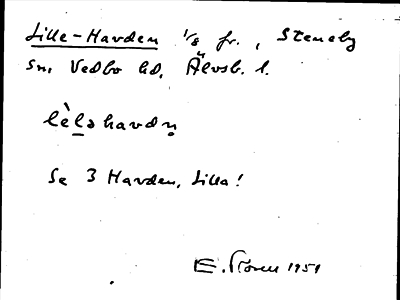 Lille-Havden 1/8 fr., Steneby
sn, Vedbo hd, Älvsb. l.
lèlə havdn̥
Se 3 Havden, Lilla!
E. 1959